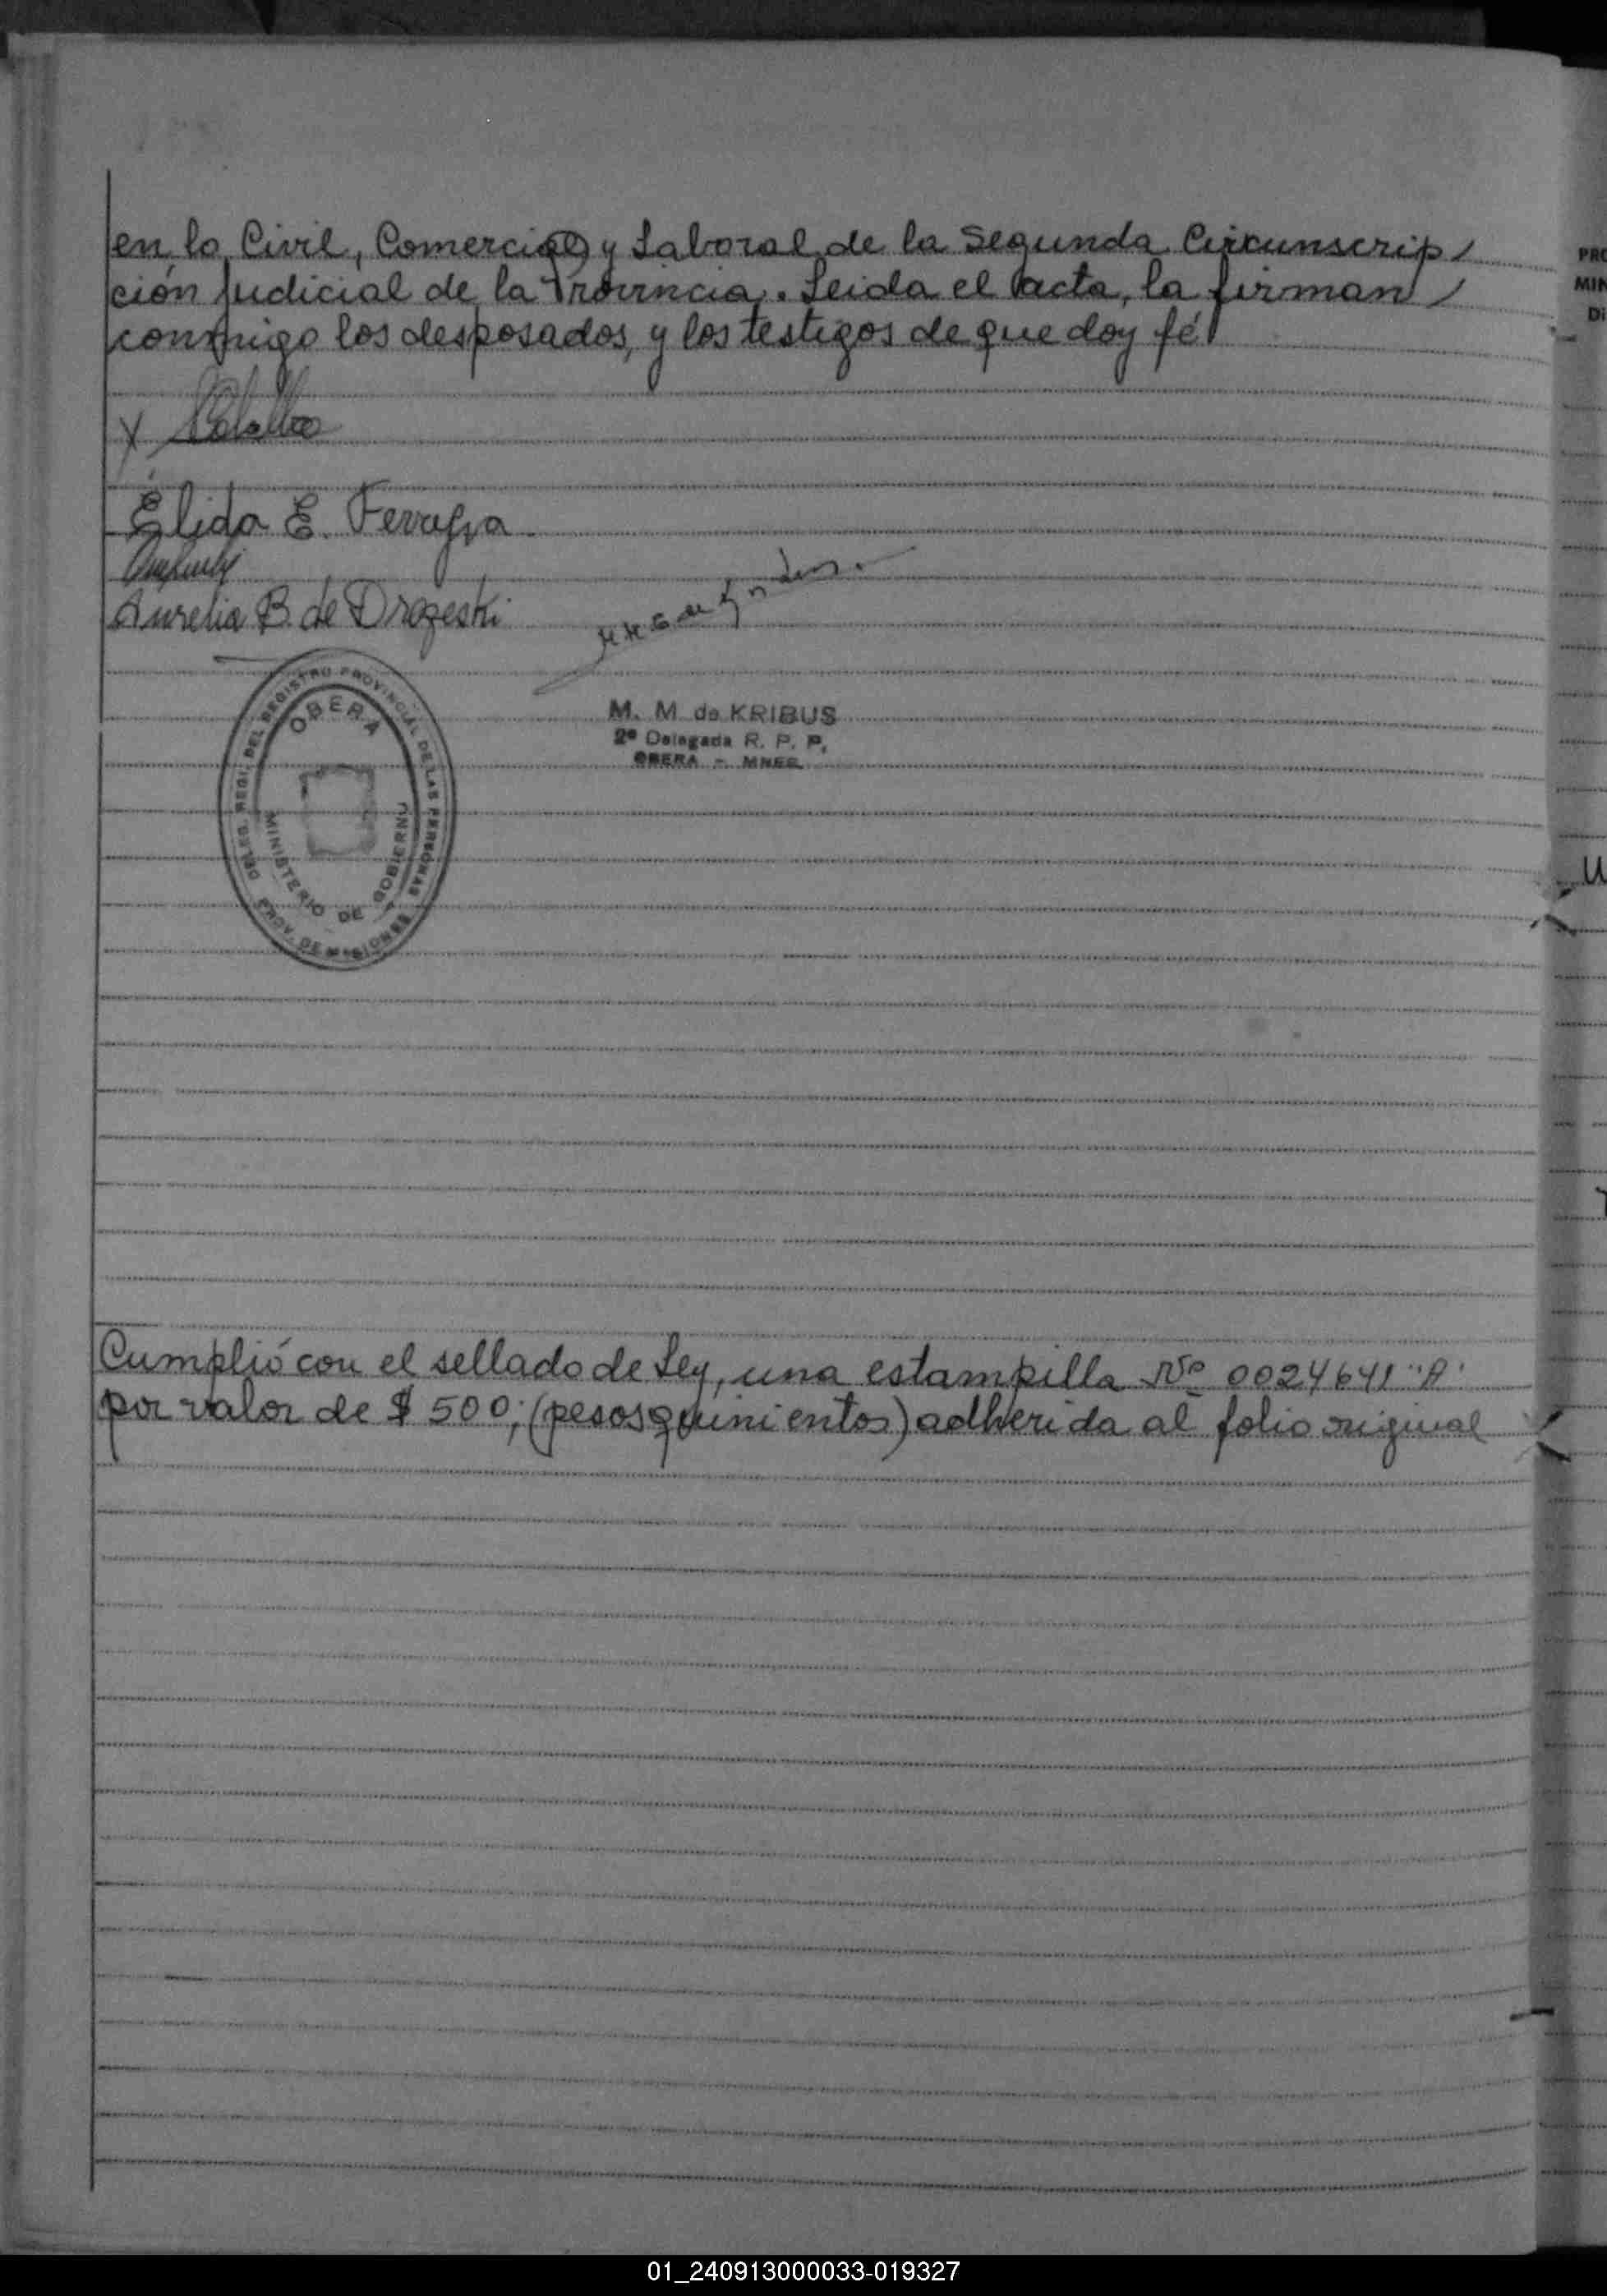 en lo Civil, Comercial y Laboral de la Segunda Circunscrip/
ción Judicial de la Provincia. Leida el acta, la firman/
conmigo los desposados, y los testigos de que doy fé
X
Élida E.
Aurelia B. de Drazeski
M. M de KRIBUS
2º Delegada R. P. P.
OBERA - MNES
DELEG. REGI. DEL REGISTRO PROVINCIAL DE LAS PERSONAS
OBERA
MINISTERIO DE GOBIERNO
PROV. DE MISIONES
Cumplió con el sellado de Ley, una estampilla Nº 0024641 "A"
por valor de $ 500; (pesos quinientos) adherida al folio original
PRO
MIN
Di
01_240913000033-019327